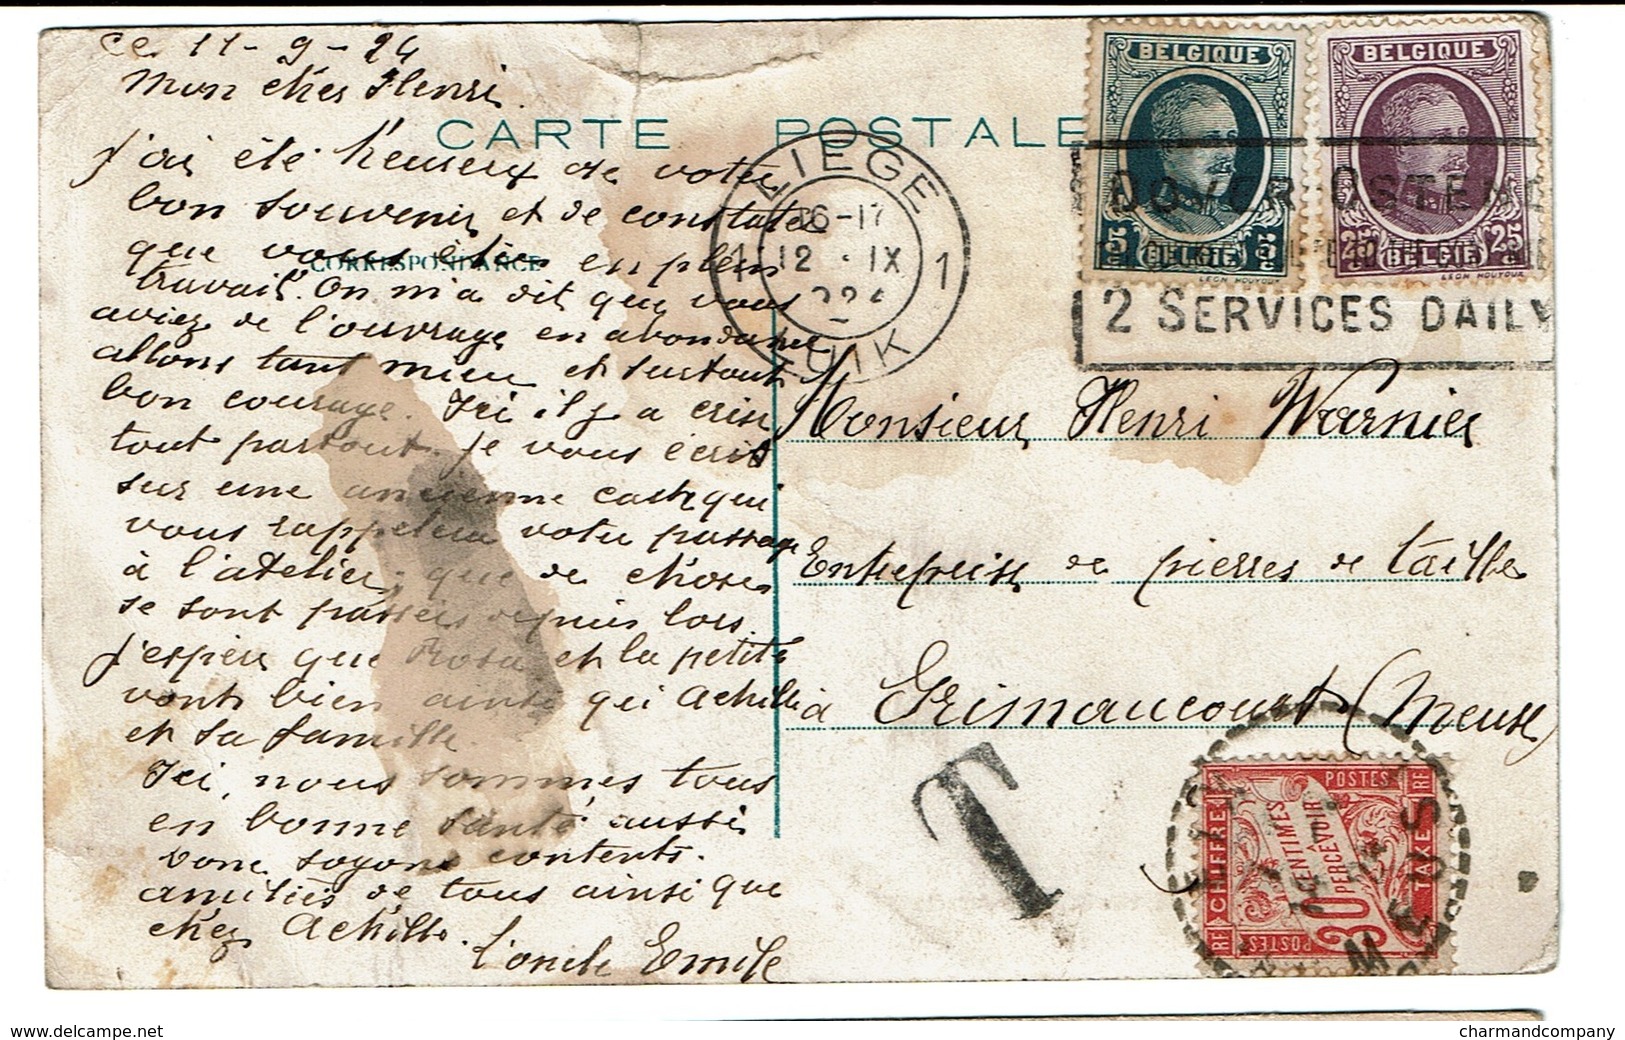 ce 11-9-24
Mon cher Henri.
CARTE POSTALE
CORRESPONDANCE
J'ai été heureux de votre
bon souvenir et de constater
que vous êtiez en plein
travail. On m'a dit que vous
aviez de l'ouvrage en abondance
allons tant mieux et surtout
bon courage. Ici il y a crise
tout partout. Je vous écris
sur une ancienne carte qui
vous rappelera votre passage
à l'atelier, que de choses
se sont passées depuis lors.
J'espère que Rosa et la petite
vont bien ainsi qui Achille
et sa famille.
Ici, nous sommes tous
en bonne santé, aussi
donc soyons contents.
amitiés de tous ainsi que
chez Achille.
l'oncle Emile
BELGIQUE
5c 5c
BELGIE
LÉON HOUYOUX
BELGIQUE
25c 25c
BELGIE
LÉON HOUYOUX
LIEGE
1 1
16-17
12 . IX
LUIK
DOVER OSTEND
2 SERVICES DAILY
Monsieur Henri Warnier
Entreprise de pierres de taille
à Grimaucourt (Meuse)
T
RF POSTES RF
CHIFFRE TAXE
30 CENTIMES À PERCEVOIR
RF POSTES RF
MEUSE
www.delcampe.net
charmandcompany